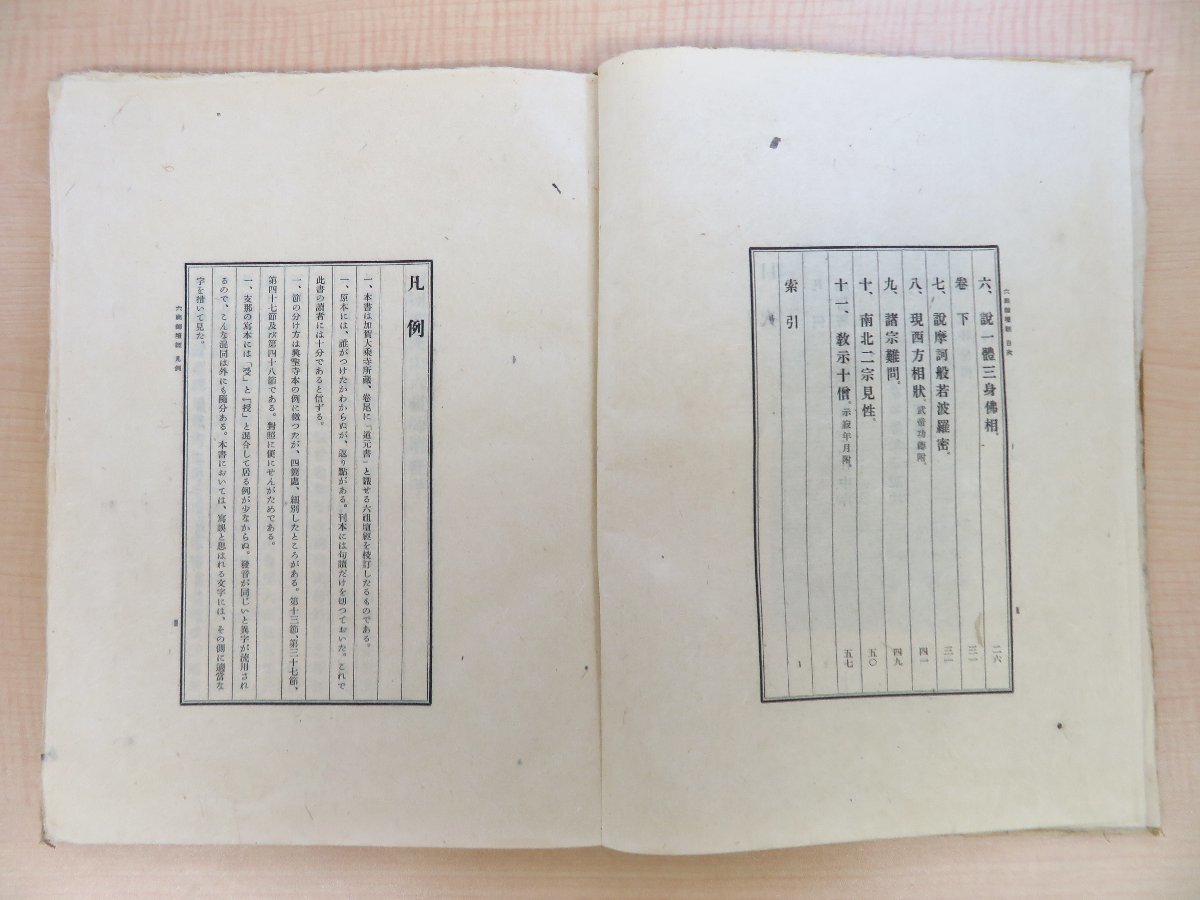 六祖壇經 目次
六、說一體三身佛相。 二六
卷下 三一
七、說摩訶般若波羅密。 三一
八、現西方相狀。武帝功德附。 四一
九、諸宗難問。 四九
十、南北二宗見性。 五〇
十一、敎示十僧。示寂年月附。 五七
索引 1
凡例
一、本書は加賀大乘寺所藏、卷尾に「道元書」と識せる六祖壇經を校訂したるものである。
一、原本には、誰がつけたかわからぬが、返り點がある。刊本には句讀だけを切つておいた。これで
此書の讀者には十分であると信ずる。
一、節の分け方は興聖寺本の例に倣つたが、四箇處、細別したところがある。第十三節、第三十七節、
第四十七節及び第四十八節である。對照に便にせんがためである。
一、支那の寫本には「受」と「授」と混合して居る例が少なからぬ。發音が同じいと異字が流用され
るので、こんな混同は外にも隨分ある。本書においては、寫誤と思はれる文字には、その側に適當な
字を措いて見た。
六祖壇經 凡例